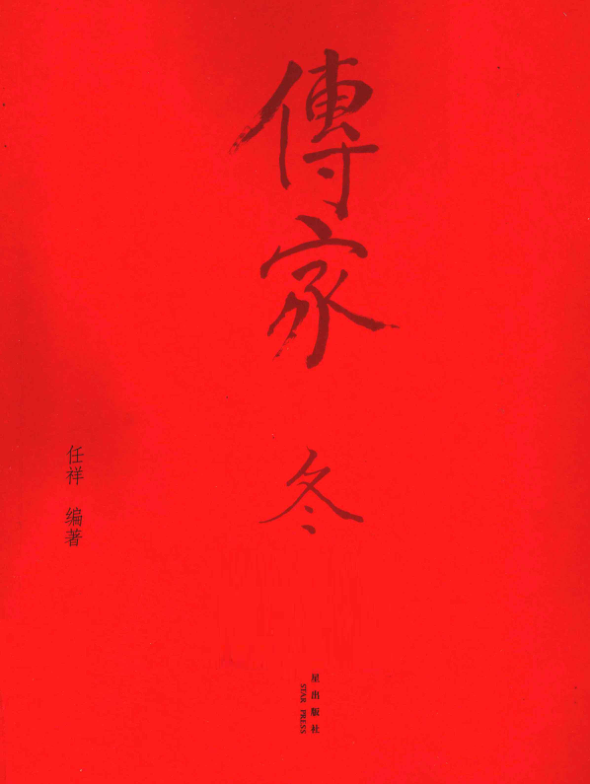 傳家
冬
任祥 编著
星出版社
STAR PRESS